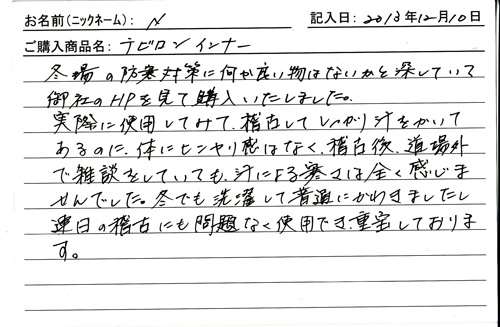 お名前(ニックネーム): N 記入日: 2013年12月10日
ご購入商品名: テビロンインナー
冬場の防寒対策に何か良い物はないかと探していて
御社のHPを見て購入いたしました。
実際に使用してみて、稽古してしっかり汁をかいて
あるのに、体にヒンヤリ感はなく、稽古後、道場外
で雑談をしていても、汁による寒さは全く感じま
せんでした。冬でも洗濯して普通にかわきましたし
連日の稽古にも問題なく使用でき、重宝しておりま
す。